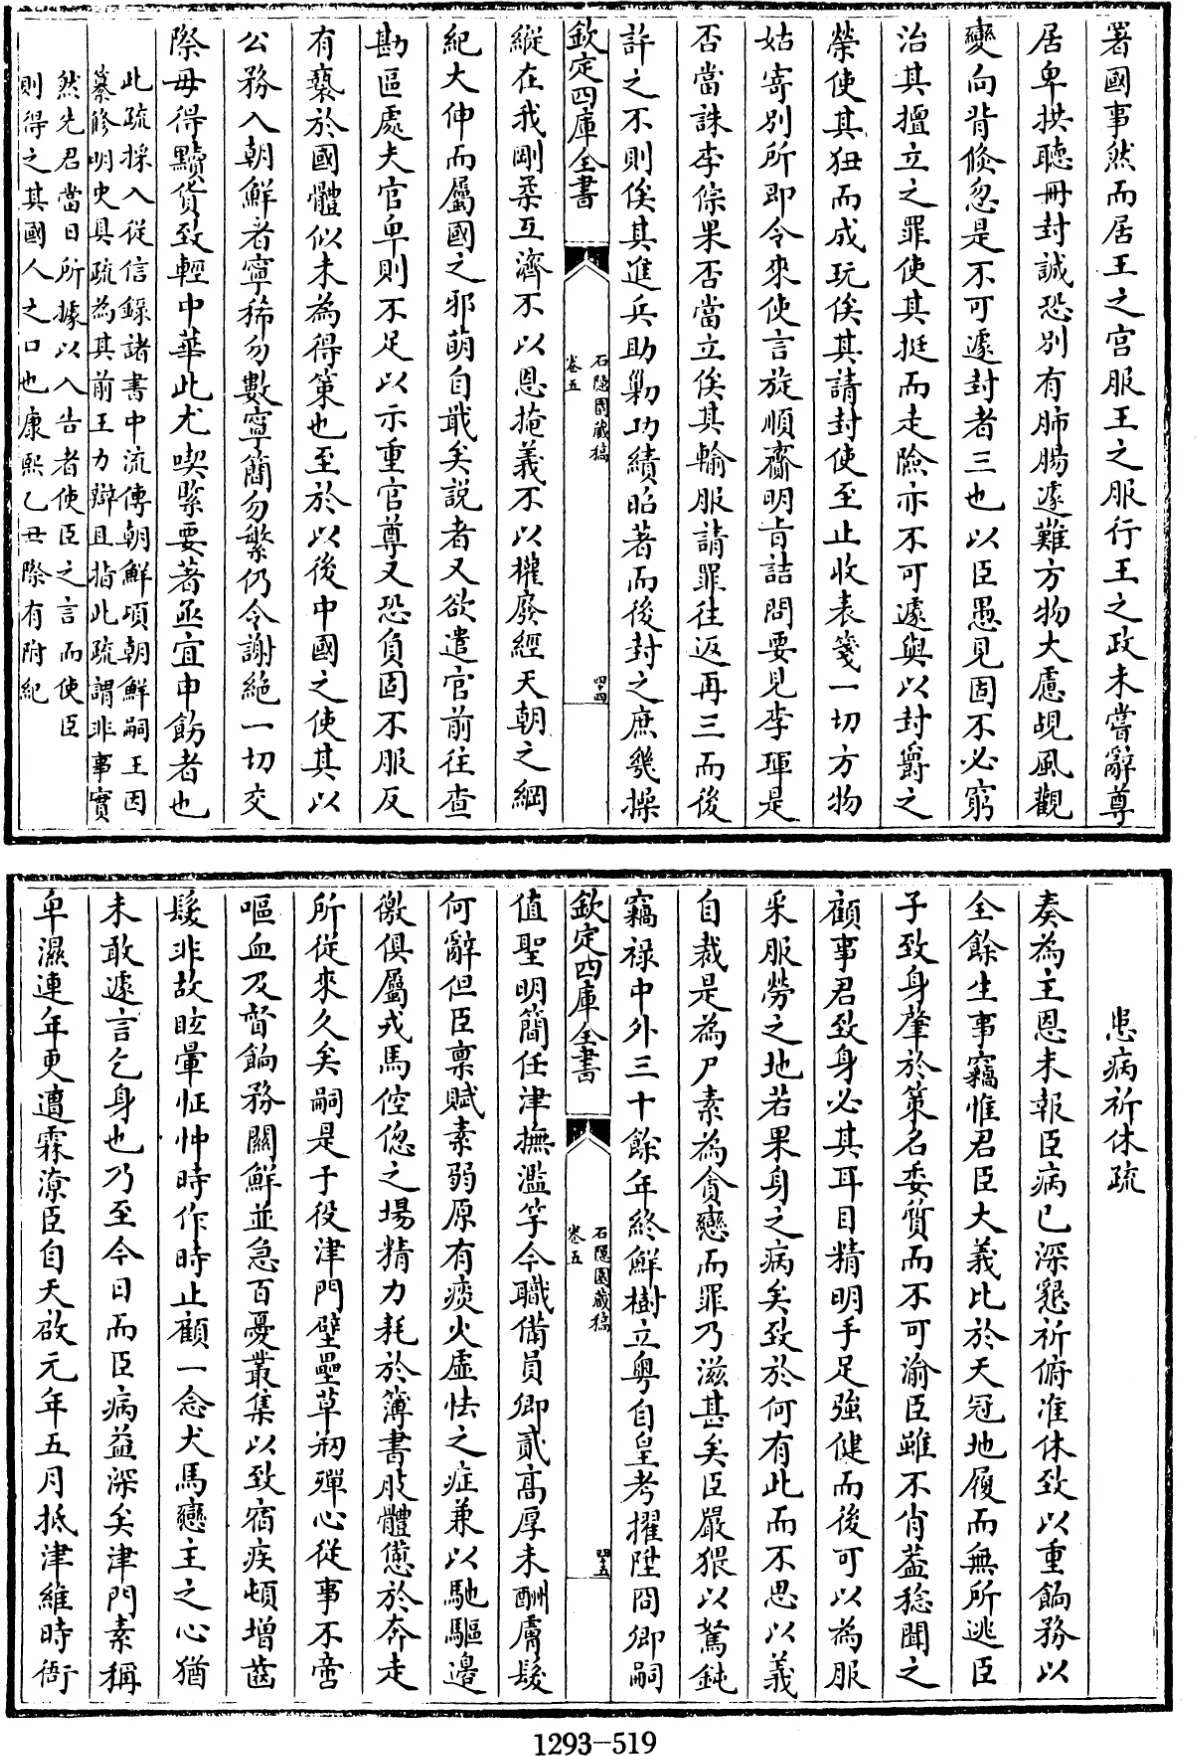 署國事然而居王之宫服王之服行王之政未嘗辭尊
居卑拱聽冊封誠恐別有肺腸遽難方物大慮覘風觀
變向背倐忽是不可遽封者三也以臣愚見固不必窮
治其擅立之罪使其挺而走險亦不可遽與以封爵之
榮使其狃而成玩俟其請封使至止收表箋一切方物
姑寄別所即令來使言旋順齎明㫖詰問要見李琿是
否當誅李倧果否當立俟其輸服請罪往返再三而後
許之不則俟其進兵助勦功績昭著而後封之庶幾操
欽定四庫全書
石隱園藏稿
卷五
四十四
縱在我剛柔互濟不以恩掩義不以權廢經天朝之綱
紀大伸而屬國之邪萌自戢矣説者又欲遣官前往查
勘區處夫官卑則不足以示重官尊又恐負固不服反
有褻於國體似未為得策也至於以後中國之使其以
公務入朝鮮者寧稀勿數寧簡勿繁仍令謝絶一切交
際毋得黷貨致輕中華此尤喫緊要著亟宜申飭者也
此疏採入從信錄諸書中流傳朝鮮頃朝鮮嗣王因
纂修明史具疏為其前王力辯且指此疏謂非事實
然先君當日所據以入告者使臣之言而使臣
則得之其國人之口也康熙乙丑際有附紀
患病祈休疏
奏為主恩未報臣病已深懇祈俯准休致以重餉務以
全餘生事竊惟君臣大義比於天冠地履而無所逃臣
子致身肇於策名委質而不可渝臣雖不肖葢稔聞之
顧事君致身必其耳目精明手足強健而後可以為服
采服勞之地若果身之病矣致於何有此而不思以義
自裁是為尸素為貪戀而罪乃滋甚矣臣嚴猥以駑鈍
竊禄中外三十餘年終鮮樹立粤自皇考擢陞冏卿嗣
欽定四庫全書
石隱園藏稿
卷五
四十五
值聖明簡任津撫濫竽今職備員卿貳高厚未酬膚髮
何辭但臣禀賦素弱原有痰火虛怯之症兼以馳驅邊
徼俱屬戎馬倥偬之場精力耗於簿書肢體憊於奔走
所從來久矣嗣是于役津門壁壘草刱殫心從事不啻
嘔血及督餉務關鮮並急百憂叢集以致宿疾頓增齒
髮非故眩暈怔忡時作時止顧一念犬馬戀主之心猶
未敢遽言乞身也乃至今日而臣病益深矣津門素稱
卑濕連年更遭霖潦臣自天啟元年五月抵津維時衙
1293-519